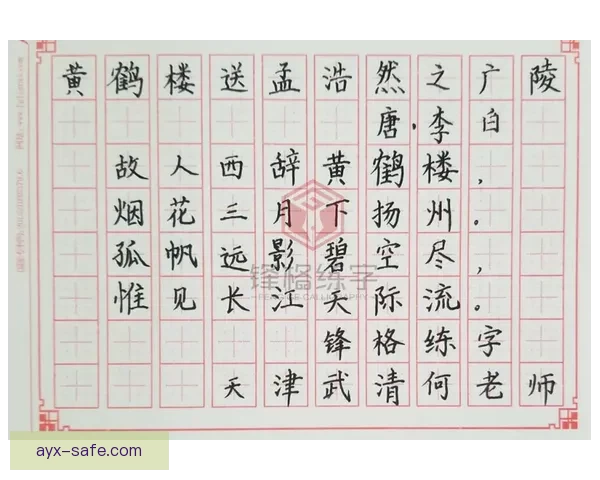 黄鹤楼送孟浩然之广陵
唐·李白
故人西辞黄鹤楼，
烟花三月下扬州。
孤帆远影碧空尽，
惟见长江天际流。
锋格练字
天津武清何老师
锋格练字
ayx-safe.com